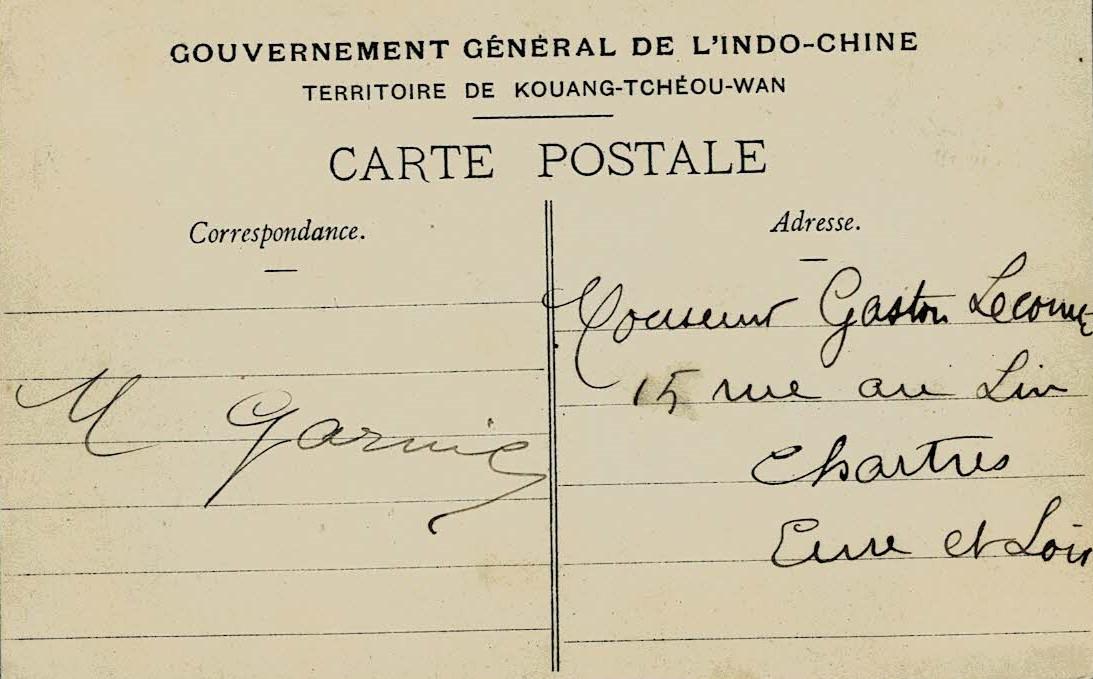 GOUVERNEMENT GÉNÉRAL DE L'INDO-CHINE
TERRITOIRE DE KOUANG-TCHÉOU-WAN
CARTE POSTALE
Correspondance.
M Garnier
Adresse.
Monsieur Gaston Lecomte
15 rue au Lin
Chartres
Eure et Loir